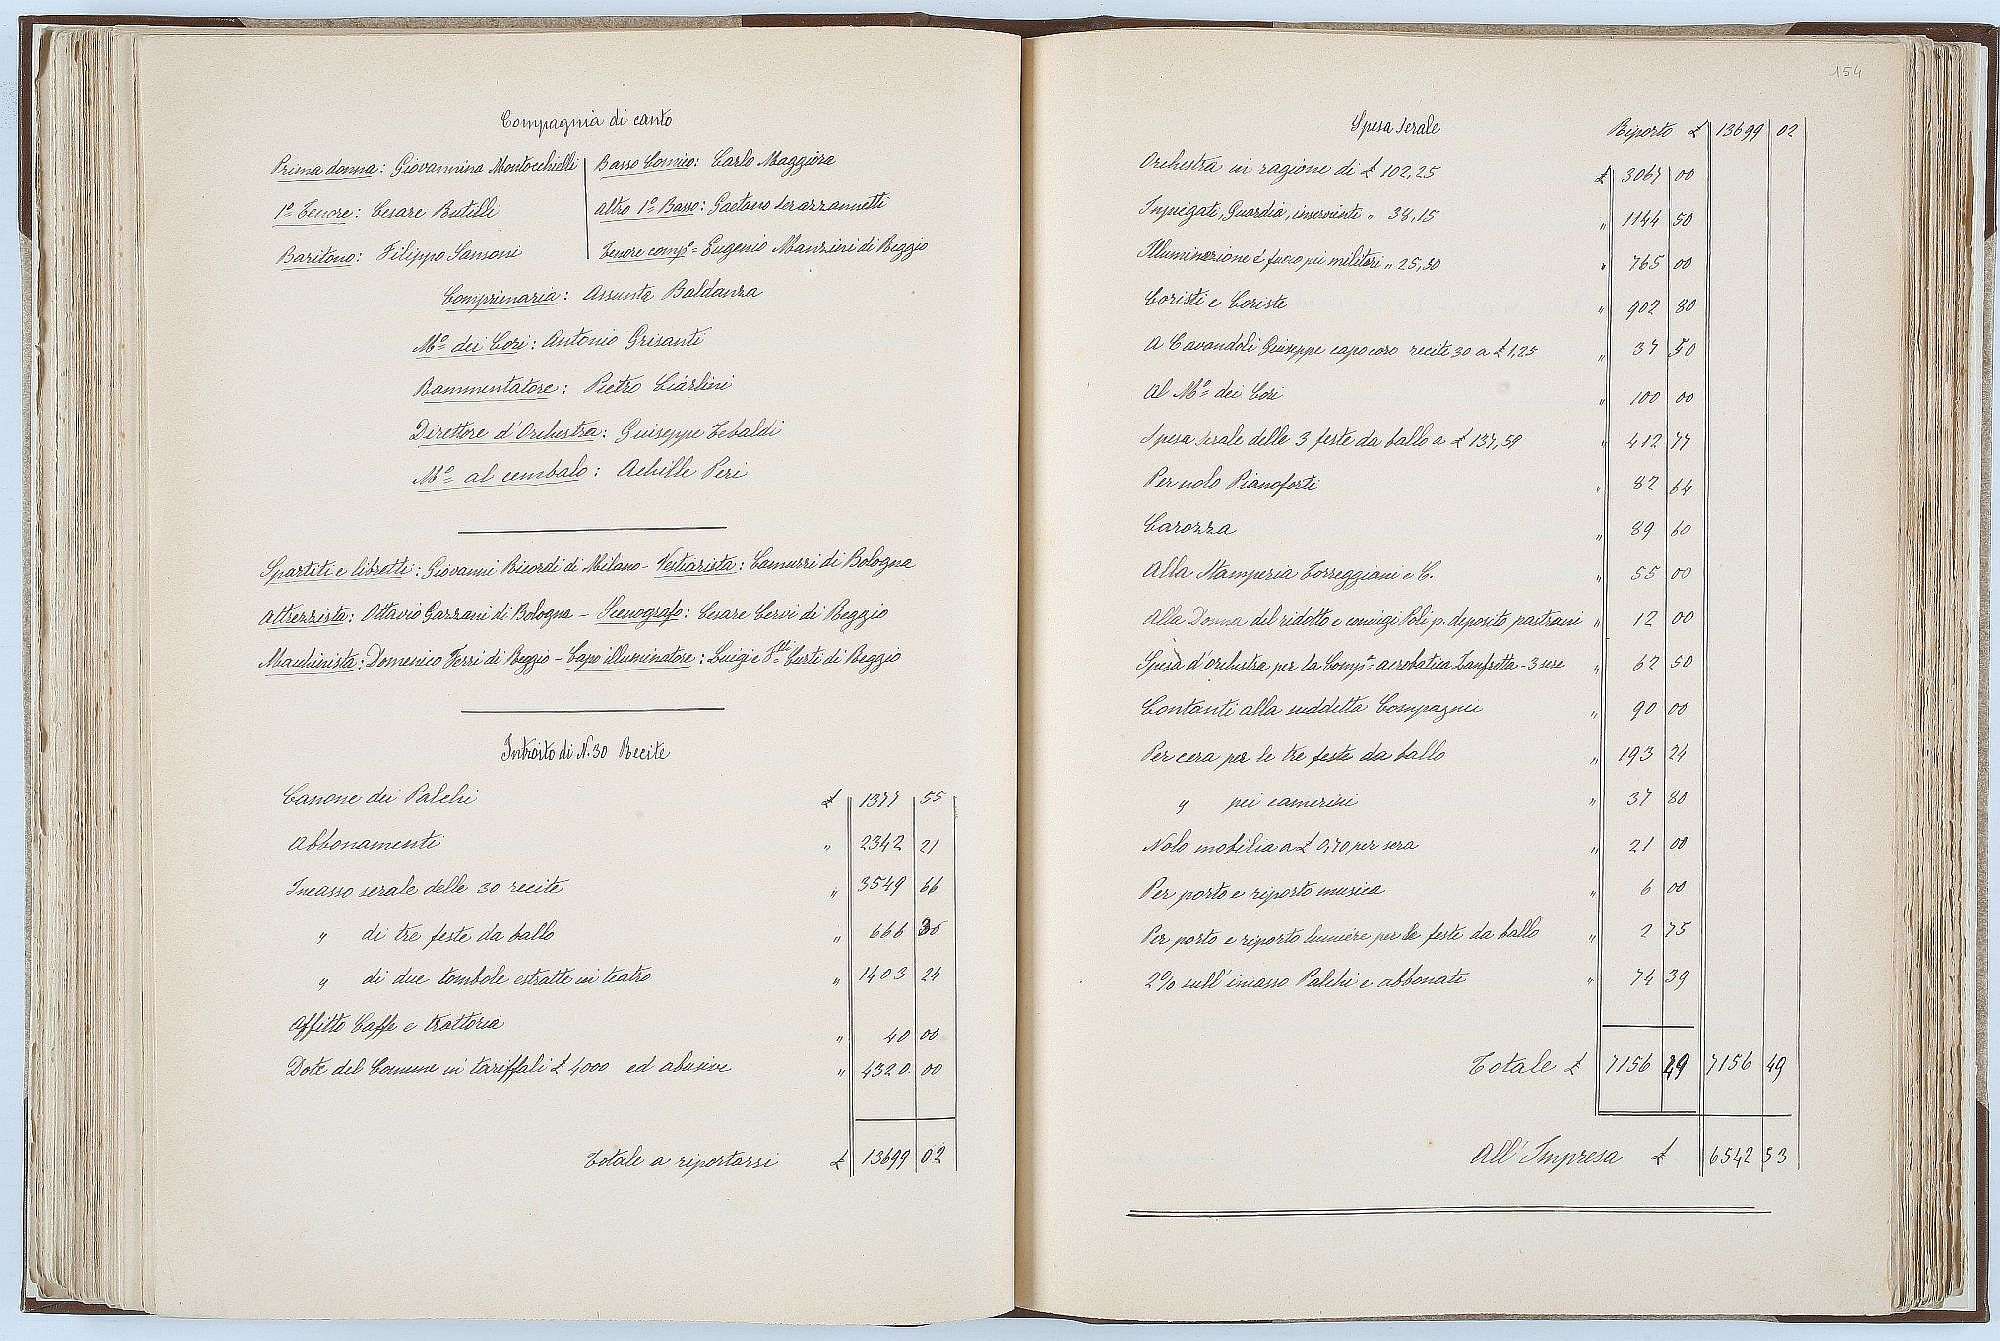 Compagnia di canto
Prima donna: Giovannina Montocchielli
1º Tenore: Cesare Butelli
Baritono: Filippo Sansoni
Basso Comico: Carlo Maggiora
Altro 1º Basso: Gaetano Serazzanetti
Tenore compº Eugenio Manzini di Reggio
Comprimaria: Assunta Baldanza
Mº dei Cori: Antonio Grisanti
Rammentatore: Pietro Ciarlini
Direttore d'Orchestra: Giuseppe Tebaldi
Mº al cembalo: Achille Peri
Spartiti e libretti: Giovanni Ricordi di Milano - Vestiarista: Camurri di Bologna
Attrezzista: Ottavio Gazzani di Bologna - Scenografo: Cesare Cervi di Reggio
Macchinista: Domenico Ferri di Reggio - Capo illuminatore: Luigi e Flli Curti di Reggio
Introito di N. 30 Recite
Canone dei Palchi £ 1377 55
Abbonamenti " 2342 21
Incasso serale delle 30 recite " 3549 66
" di tre feste da ballo " 666 36
" di due tombole estratte in teatro " 1403 24
Affitto Caffe e trattoria " 40 00
Dote del Comune in tariffali £ 4000 ed abusive " 4320 00
Totale a riportarsi £ 13699 02
154
Spesa serale Riporto £ 13699 02
Orchestra in ragione di £ 102,25 £ 3067 00
Inpiegati, Guardia, inservienti " 38,15 " 1144 50
Illuminazione e fuoco pei militari " 25,50 " 765 00
Coristi e Coriste " 902 80
A Cavandoli Giuseppe capo coro recite 30 a £ 1,25 " 37 50
Al Mº dei Cori " 100 00
Spesa serale delle 3 feste da ballo a £ 137,59 " 412 77
Per nolo Pianoforti " 82 64
Carozza " 89 60
Alla Stamperia Torreggiani e C. " 55 00
Alla Donna del ridotto e coniugi Poli p. deposito pastrani " 12 00
Spesa d'orchestra per la Compª acrobatica Zanfretta - 3 sere " 62 50
Contanti alla suddetta Compagnia " 90 00
Per cera per le tre feste da ballo " 193 24
" pei camerini " 37 80
Nolo mobilia a £ 0,70 per sera " 21 00
Per porto e riporto musica " 6 00
Per porto e riporto lumiere per le feste da ballo " 2 75
2% sull'incasso Palchi e abbonati " 74 39
Totale £ 7156 49 7156 49
All'Impresa £ 6542 53